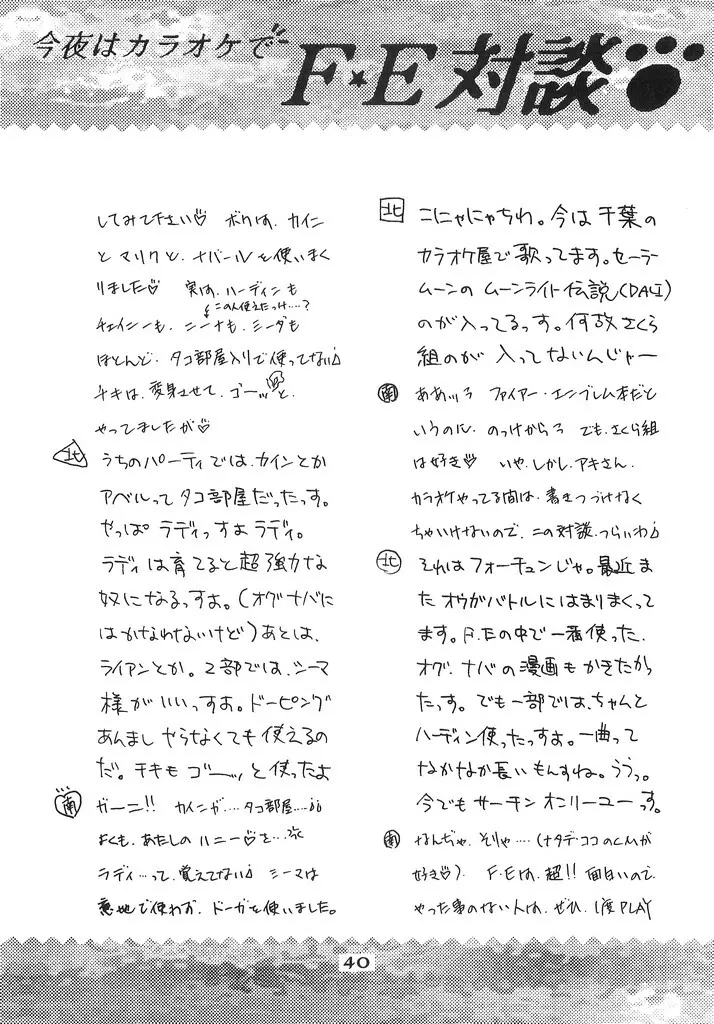 今夜はカラオケで
F★E対談
北 こにゃにゃちわ。今は千葉の
カラオケ屋で歌ってます。セーラー
ムーンの ムーンライト伝説(DALI)
のが入ってるっす。何故さくら
組のが 入ってないんじゃー
南 ああッろ ファイアー・エンブレム本だと
いうのに、のっけからろ でも、さくら組
は好き♡ いや、しかし、アキさん、
カラオケやってる間は、書きつづけなく
ちゃいけないので、この対談、つらいわ
北 それはフォーチュンじゃ。最近ま
たオウガバトルにはまりまくって
ます。F.Eの中で一番使った、
オグ、ナバの漫画もかきたかっ
たっす。でも一部では、ちゃんと
ハーディン使ったっすよ。一曲って
なかなか長いもんすね。ううっ。
今でもサーチン オンリーユーっす。
南 なんぢゃ、そりゃ‥‥(ナタデ・ココのCMが
好き♡)。 F・Eは、超!!面白いので、
やった事のない人は、ぜひ、1度PLAY
してみて下さい♡ ボクは、カイン
とマリクと、ナバールを使いまく
りました♡ 実は、ハーディンも
この人使えたっけ‥‥?
チェイニーも、ニーナも、ミーダも
ほとんど、タコ部屋入りで使ってない
チキは、変身させて、ゴーッと、
やってましたが♡
北 うちのパーティでは、カインとか
アベルってタコ部屋だったっす。
やっぱ ラディっすよラディ。
ラディは育てると超強力な
奴になるっすよ。(オグナバに
はかなわないけど)あとは、
ライアンとか。2部では、シーマ
様がいいっすよ。ドーピング
あんまし やらなくても使えるの
だ。チキもゴーッと使ったよ
南 ガーン!! カインが‥‥タコ部屋‥‥
よくも、あたしのハニー♡を‥
ラディ‥‥って、覚えてない シーマは
意地で使わず、ドーガを使いました。
40